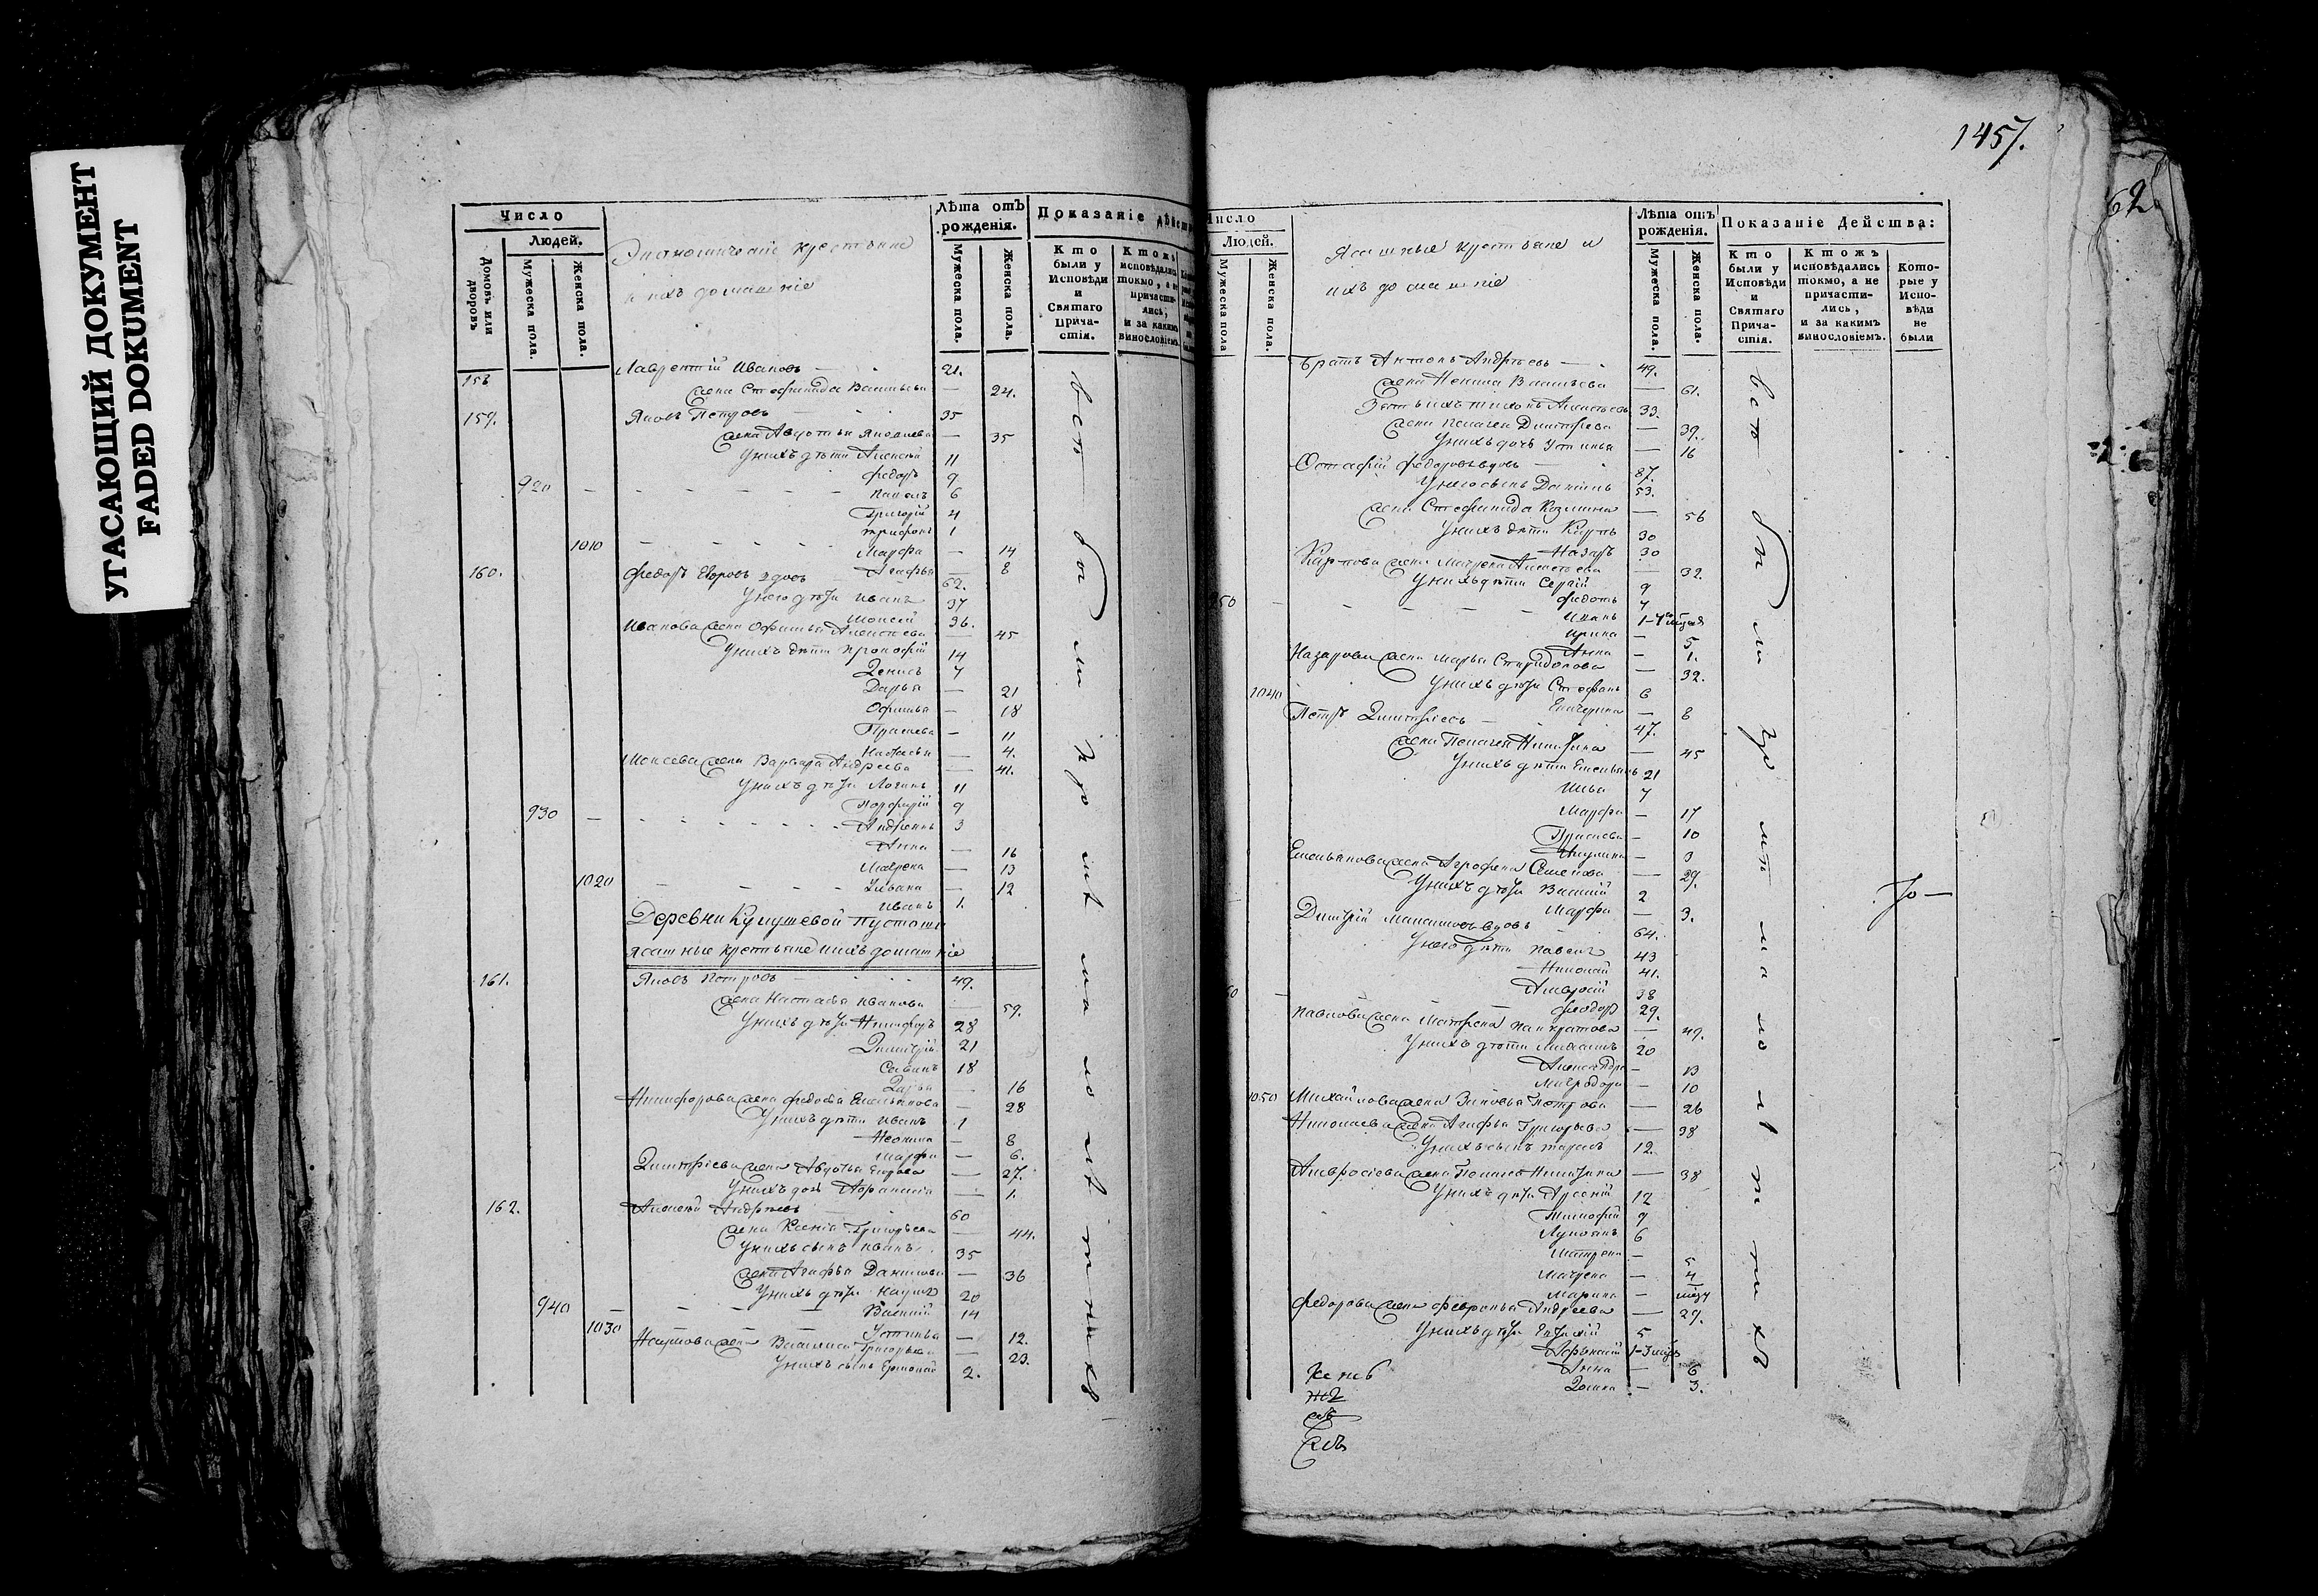 УГАСАЮЩИЙ ДОКУМЕНТ
FADED DOKUMENT
Число
Людей.
Домовъ или дворовъ
Мужеска пола.
Женска пола.
Экономическіе крестьяне
и ихъ домашніе
Лѣта отъ рожденія.
Мужеска пола.
Женска пола.
Показаніе дѣйст
Кто были у Исповѣди и Святаго Прича-стія.
Ктожъ исповѣдались токмо, а не причасти-лись, и за какимъ винословіемъ.
158 Лаврентій Ивановъ — 21.
жена Стефанида Васильева — 24.
159. Яковъ Петровъ 35
жена Авдотья Яковлева — 35
У нихъ дѣти Алексѣй 11
Федоръ 9
920 — Павелъ 6
Григорій 4
Трифонъ 1
1010 — Марфа — 14
Агафья — 8
160. Федоръ Егоровъ вдовъ 62.
У него дѣти Иванъ 37
Моисей 36.
Иванова жена Офимья Алексѣева — 45
У нихъ дѣти Прокофій 14
Денисъ 7
Дарья — 21
Офимья — 18
Прасковья — 11
Настасья — 4.
Моисеева жена Варвара Андреева — 41.
У нихъ дѣти Логинъ 11
Порфирій 9
930 — Андреянъ 3
Анна — 16
Матрена — 13
1020 — Ульяна — 12
Иванъ 1.
Деревни Кулушевой Пустоши
ясашные крестьяне и ихъ домашніе
161. Яковъ Петровъ — 49.
жена Настасья Иванова — 59.
У нихъ дѣти Никифоръ 28
Димитрій 21
Савинъ 18
Дарья — 16
Никифорова жена Федосья Емельянова — 28
У нихъ дѣти Иванъ 1
Неонила — 8
Марфа — 6.
Димитріева жена Авдотья Егорова — 27.
У нихъ дочь — 1.
162. Алексѣй Андреевъ 60
жена Ксенія Григорьева — 44.
У нихъ сынъ Иванъ 35
жена Агафья Данилова — 36
У нихъ дѣти Наумъ 20
940 — Василій 14
1030 — Устинья — 12.
Наумова жена Василиса Григорьева — 23.
У нихъ сынъ Ермолай 2.
всѣ были при
1457.
62
Число
Людей.
Мужеска пола
Женска пола.
Ясашные крестьяне и
ихъ домашніе
Лѣта отъ рожденія.
Мужеска пола.
Женска пола.
Показаніе Действа:
Кто были у Исповѣди и Святаго Прича-стія.
Ктожъ исповѣдались токмо, а не причасти-лись, и за какимъ винословіемъ.
Кото-рые у Испо-вѣди не были
Братъ Антонъ Андреевъ — 49.
жена Ненила Васильева — 61.
Зять ихъ Тихонъ Алексѣевъ 33.
жена Пелагея Димитріева — 39.
У нихъ дочь Устинья — 16
Остафій Федоровъ вдовъ — 87.
У него сынъ Данилъ 53.
жена Стефанида Козмина — 56
У нихъ дѣти Карпъ 30
Назаръ 30
Карпова жена Матрена Алексѣева — 32.
У нихъ дѣти Сергій 9
950 — Федотъ 7
Иванъ 1
Ирина — 5
Анна — 1.
Назарова жена Марья Спиридонова — 32.
1040 У нихъ дѣти Стефанъ 6
Екатерина — 8
Петръ Димитріевъ — 47.
жена Пелагея Никитина — 45
У нихъ дѣти Емельянъ 21
Илья 7
Марфа — 17
Прасковья — 10
Акулина — 3
Емельянова жена Агрофена Семенова — 29.
У нихъ дѣти Василій 2
Марфа — 3.
Димитрій вдовъ 64.
У него дѣти Павелъ 43
Николай 41.
60 — Амвросій 38
Феодоръ 29.
Павлова жена Матрена Панкратова — 49.
У нихъ дѣти Михаилъ 20
Александра — 13
Митродора — 10
1050 Михайлова жена Зиновья Петрова — 26
Николаева жена Агафья Григорьева — 38
У нихъ сынъ Тарасъ 12.
Амвросіева жена Пелагея Никитина — 38
У нихъ дѣти Арсеній 12
Тимофей 9
Лукоянъ 6
Матрена — 5
Матрена — 4
Марина —
Федорова жена Февронья Андреева — 29.
У нихъ дѣти Евтихій 5
1-3
Анна — 6
Домна — 3.
всѣ были при